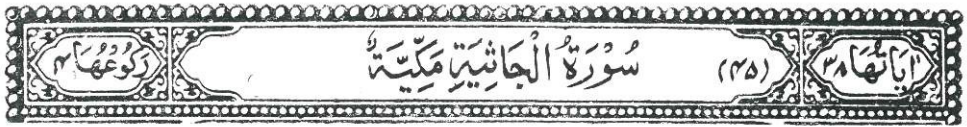 اٰيَاتُهَا ۳۸ (۴۵) سُوْرَةُ الْجَاثِيَةِ مَكِّيَّةٌ رُكُوْعُهَا ۴